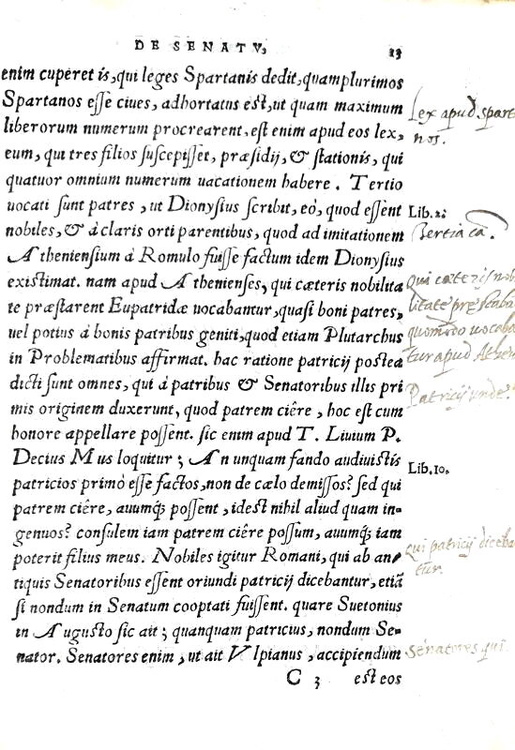 DE SENATV, 13
enim cuperet is, qui leges Spartanis dedit, quamplurimos
Spartanos esse ciues, adhortatus est, ut quam maximum
liberorum numerum procrearent, est enim apud eos lex,
eum, qui tres filios suscepisset, præsidij, & stationis, qui
quatuor omnium numerum uacationem habere. Tertio
uocati sunt patres, ut Dionysius scribit, eò, quod essent
nobiles, & à claris orti parentibus, quod ad imitationem
Atheniensium à Romulo fuisse factum idem Dionysius
existimat. nam apud Athenienses, qui cæteris nobilita
te præstarent Eupatridæ uocabantur, quasi boni patres,
uel potius à bonis patribus geniti, quod etiam Plutarchus
in Problematibus affirmat. hac ratione patricij postea
dicti sunt omnes, qui à patribus & Senatoribus illis pri
mis originem duxerunt, quod patrem ciêre, hoc est cum
honore appellare possent. sic enim apud T. Liuium P.
Decius Mus loquitur; An unquam fando audiuistis
patricios primò esse factos, non de cælo demissos? sed qui
patrem ciêre, auumq; possent, idest nihil aliud quam in-
genuos? consulem iam patrem ciêre possum, auumq; iam
poterit filius meus. Nobiles igitur Romani, qui ab an-
tiquis Senatoribus essent oriundi patricij dicebantur, etiã
si nondum in Senatum cooptati fuissent. quare Suetonius
in Augusto sic ait; quanquam patricius, nondum Se-
nator. Senatores enim, ut ait Vlpianus, accipiendum
C 3 est eos
Lex apud sparta
nos.
Lib. 2.
Tertia cã.
Qui cæteris nob
litate
quomodo uocaba
tur apud Athen
Patricij unde.
Lib. 10.
qui patricij diceba
tur.
Senatores qui.